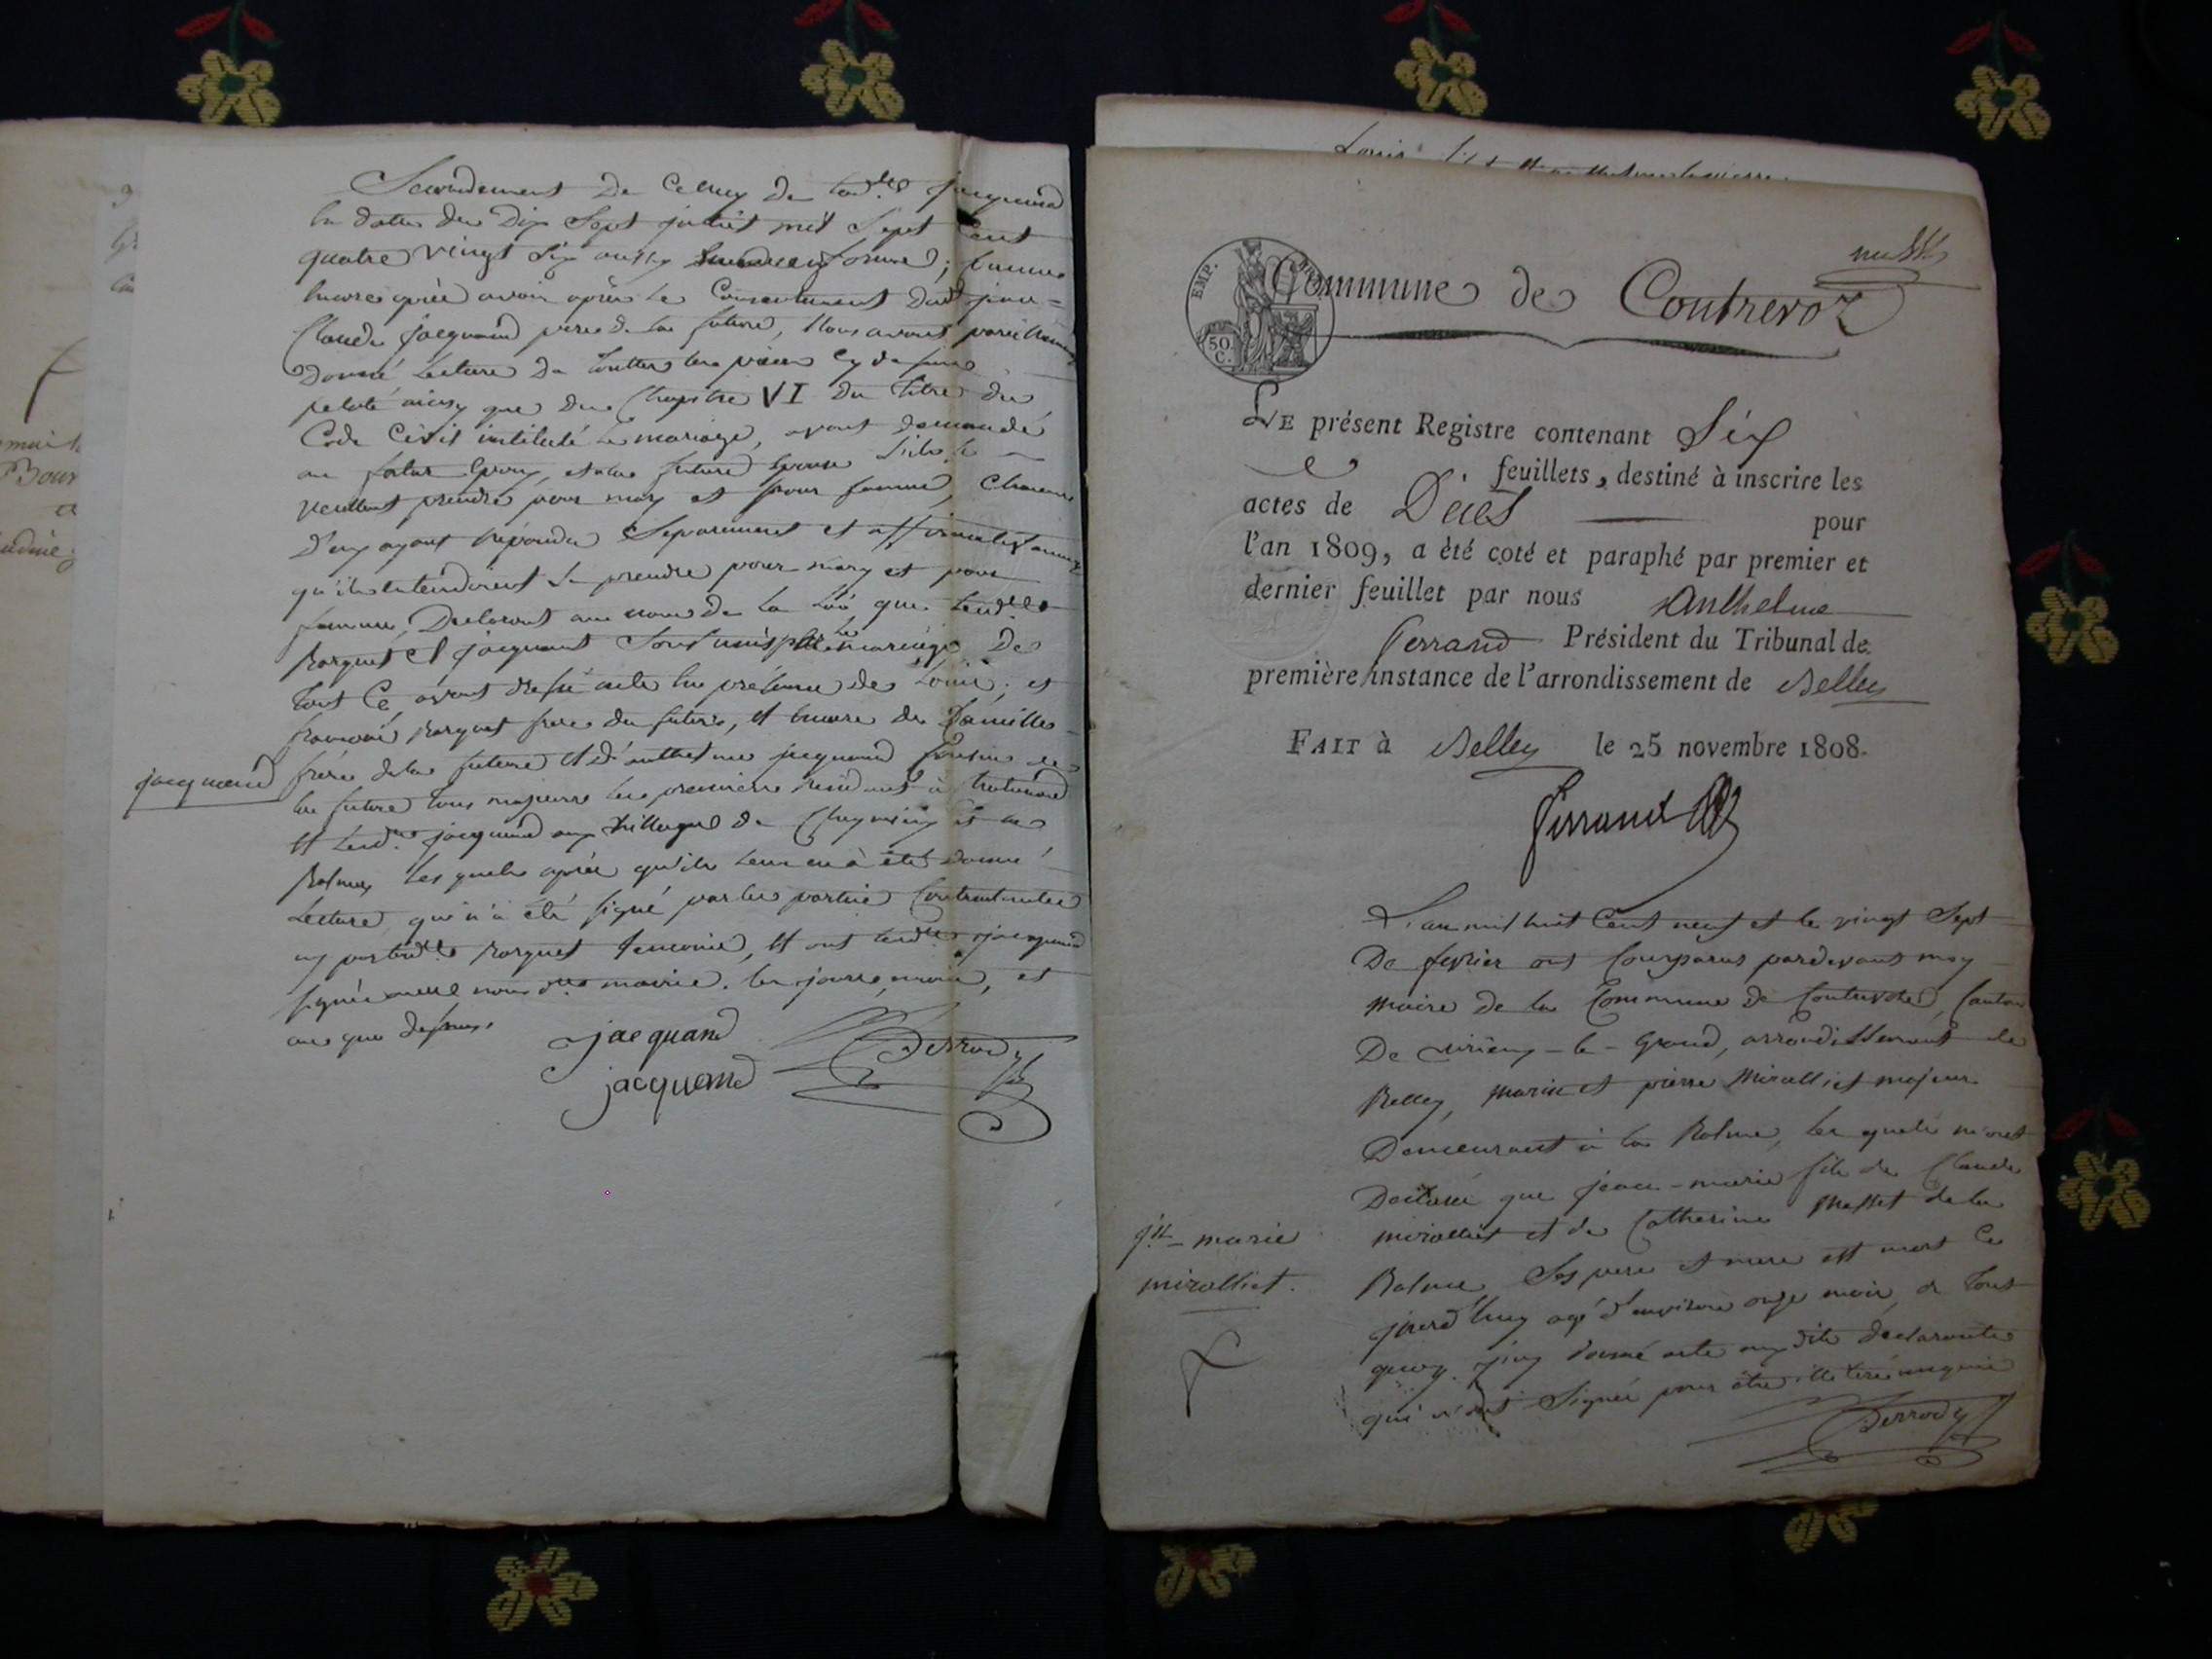 Secondement de Celuy de lad.te jacquand
la datte du Dix Sept juillet mil Sept Cent
quatre vingt Six aussy en forme; comme
encore après avoir après le Consentement dud.t jean=
Claude jacquand pere de la future, Nous avons pareillement
Donné Lecture de touttes les pieces cy dessus
relaté ainsy que du Chapitre VI du titre du
Code Civil intitulé le mariage, avons demandé
au futur Epoux, et a la future Epouse S'ils se
veullent prendre pour mary et pour femme, Chacun
D'eux ayant répondu Separement et affirmativement
qu'ils entendoient se prendre pour mary et pour
femme, Declarons au nom de la Loi que lesd.tes
et jacquand Sont unis par le mariage De
tout Ce avons dressé acte en présence de Louis, et
françois frere du futur, et encore de Camille
jacquand
frére de la future et d'anthelme jacquand Cousin de
la future tous majeurs les premiers résidant à
et lesd.ts jacquand aux villages de et la
Balme, les quels après qu'il leur en à été donné
Lecture, qui n'à été signé par les parties Contractantes
ny par lesd.ts témoins, et ont lesd.ts jacquand
signés avec nous d.t maire. les jours, mois, et
ans que dessus.
jacquand
Derrody
jacquand
EMP.
50 C.
Commune de Contrevoz
LE présent Registre contenant Six
feuillets, destiné à inscrire les
actes de Décès pour
l'an 1809, a été coté et paraphé par premier et
dernier feuillet par nous Anthelme
Ferrand Président du Tribunal de
première instance de l'arrondissement de Belley
FAIT à Belley le 25 novembre 1808.
Ferrand
L'an mil huit Cent neuf et le vingt Sept
De fevrier ont Comparus pardevant moy
maire de la Commune de Contrevoz, Canton
De virieu-le-Grand, arrondissement de
Belley, Marin et pierre Miralliet majeurs
Demeurant à la Balme, les quels m'ont
Déclaré que jean-marie fils de Claude
miralliet et de Catherine Masset de la
j.n marie
miralliet.
Balme Ses pere et mere est mort Ce
jourd'huy agé d'environ onze mois, de tout
quoy j'ay donné acte aux dits déclarants
qui n'ont Signés pour être illeterés enquis
Derrody